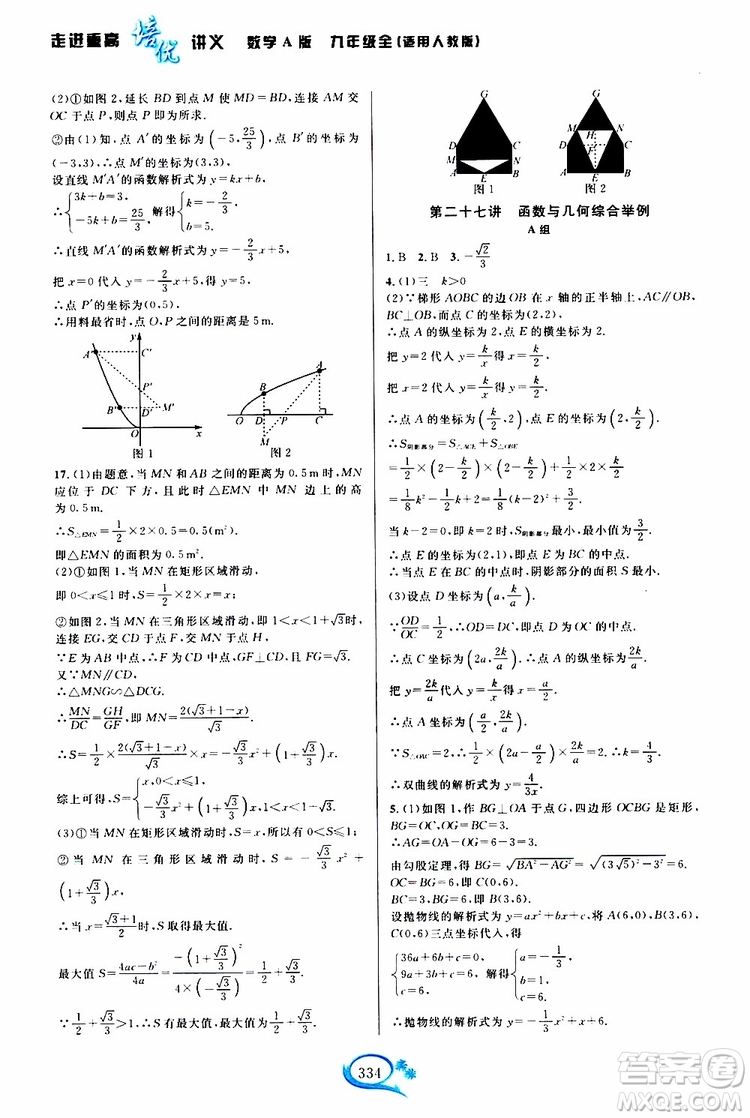 走进重高 培优 讲义 数学A版 九年级全(适用人教版)
(2)①如图2,延长BD到点M使MD=BD,连接AM交
OC于点P,则点P即为所求.
②由(1)知,点A′的坐标为(-5,25/3),点B′的坐标为
(-3,3),∴点M′的坐标为(3,3).
设直线M′A′的函数解析式为y=kx+b,则
∴{3k+b=3, -5k+b=25/3, 解得{k=-2/3, b=5.
∴直线M′A′的函数解析式为y=-2/3x+5.
把x=0代入y=-2/3x+5,得y=5.
∴点P′的坐标为(0,5).
∴用料最省时,点O,P之间的距离是5m.
y
A′ C′
P′
B′ D′ M′
O x
图1
A
B
O D P C
M
图2
17.(1)由题意,当MN和AB之间的距离为0.5m时,MN
应位于DC下方,且此时△EMN中MN边上的高
为0.5m.
∴S△EMN=1/2×2×0.5=0.5(m²).
即△EMN的面积为0.5m².
(2)①如图1,当MN在矩形区域滑动,
即0<x≤1时,S=1/2×2×x=x.
②如图2,当MN在三角形区域滑动,即1<x<1+√3时,
连接EG,交CD于点F,交MN于点H,
∵E为AB中点,∴F为CD中点,GF⊥CD,且GF=√3.
又∵MN∥CD,
∴△MNG∽△DCG.
∴MN/DC=GH/GF,即MN=2(√3+1-x)/√3.
∴S=1/2×2(√3+1-x)/√3·x=-√3/3x²+(1+√3/3)x.
综上可得S={x,0<x≤1, -√3/3x²+(1+√3/3)x,1<x<1+√3.
(3)①当MN在矩形区域滑动时,S=x,所以有0<S≤1.
②当MN在三角形区域滑动时,S=-√3/3x²+
(1+√3/3)x,
∴当x=(1+√3)/2时,S取得最大值.
最大值S=(4ac-b²)/4a=-(1+√3/3)²/(4×(-√3/3))=1/2+√3/3.
∵1/2+√3/3>1,∴S有最大值,最大值为1/2+√3/3.
G
D C
M N
A E B
图1
G
M H N
D F C
A E B
图2
第二十七讲 函数与几何综合举例
A组
1.B 2.B 3.-√2/3
4.(1)三 k>0
(2)∵梯形AOBC的边OB在x轴的正半轴上,AC∥OB,
BC⊥OB,点C的坐标为(2,2),
∴点A的纵坐标为2,点E的横坐标为2.
把y=2代入y=k/x得x=k/2.
把x=2代入y=k/x得y=k/2.
∴点A的坐标为(k/2,2),点E的坐标为(2,k/2).
∴S阴影部分=S△ACE+S△OBE
=1/2×(2-k/2)×(2-k/2)+1/2×2×k/2
=1/8k²-1/2k+2=1/8(k-2)²+3/2.
当k-2=0,即k=2时,S阴影部分最小,最小值为3/2.
∴点E的坐标为(2,1),即点E为BC的中点.
∴当点E为BC的中点时,阴影部分的面积S最小.
(3)设点D坐标为(a,k/a),
∵OD/OC=1/2,∴OD=DC,即点D为OC的中点.
∴点C的坐标为(2a,2k/a).∴点A的纵坐标为2k/a.
把y=2k/a代入y=k/x得x=a/2.
∴点A坐标为(a/2,2k/a).
∵S△OAC=2,∴1/2×(2a-a/2)×2k/a=2,∴k=4/3.
∴双曲线的解析式为y=4/3x.
5.(1)如图1,作BG⊥OA于点G,四边形OCBG是矩形,
BC=OG=3,OC=BG.
∴AG=OA-OG=6-3=3.
由勾股定理,得BG=√(BA²-AG²)=√((3√5)²-3²)=6.
OC=BG=6,即C(0,6).
BC=3,∴B(3,6).
设抛物线的解析式为y=ax²+bx+c,将A(6,0),B(3,6),
C(0,6)三点坐标代入,得
{36a+6b+c=0, 9a+3b+c=6, c=6, 解得{a=-1/3, b=1, c=6.
∴抛物线的解析式为y=-1/3x²+x+6.
334
作业精灵